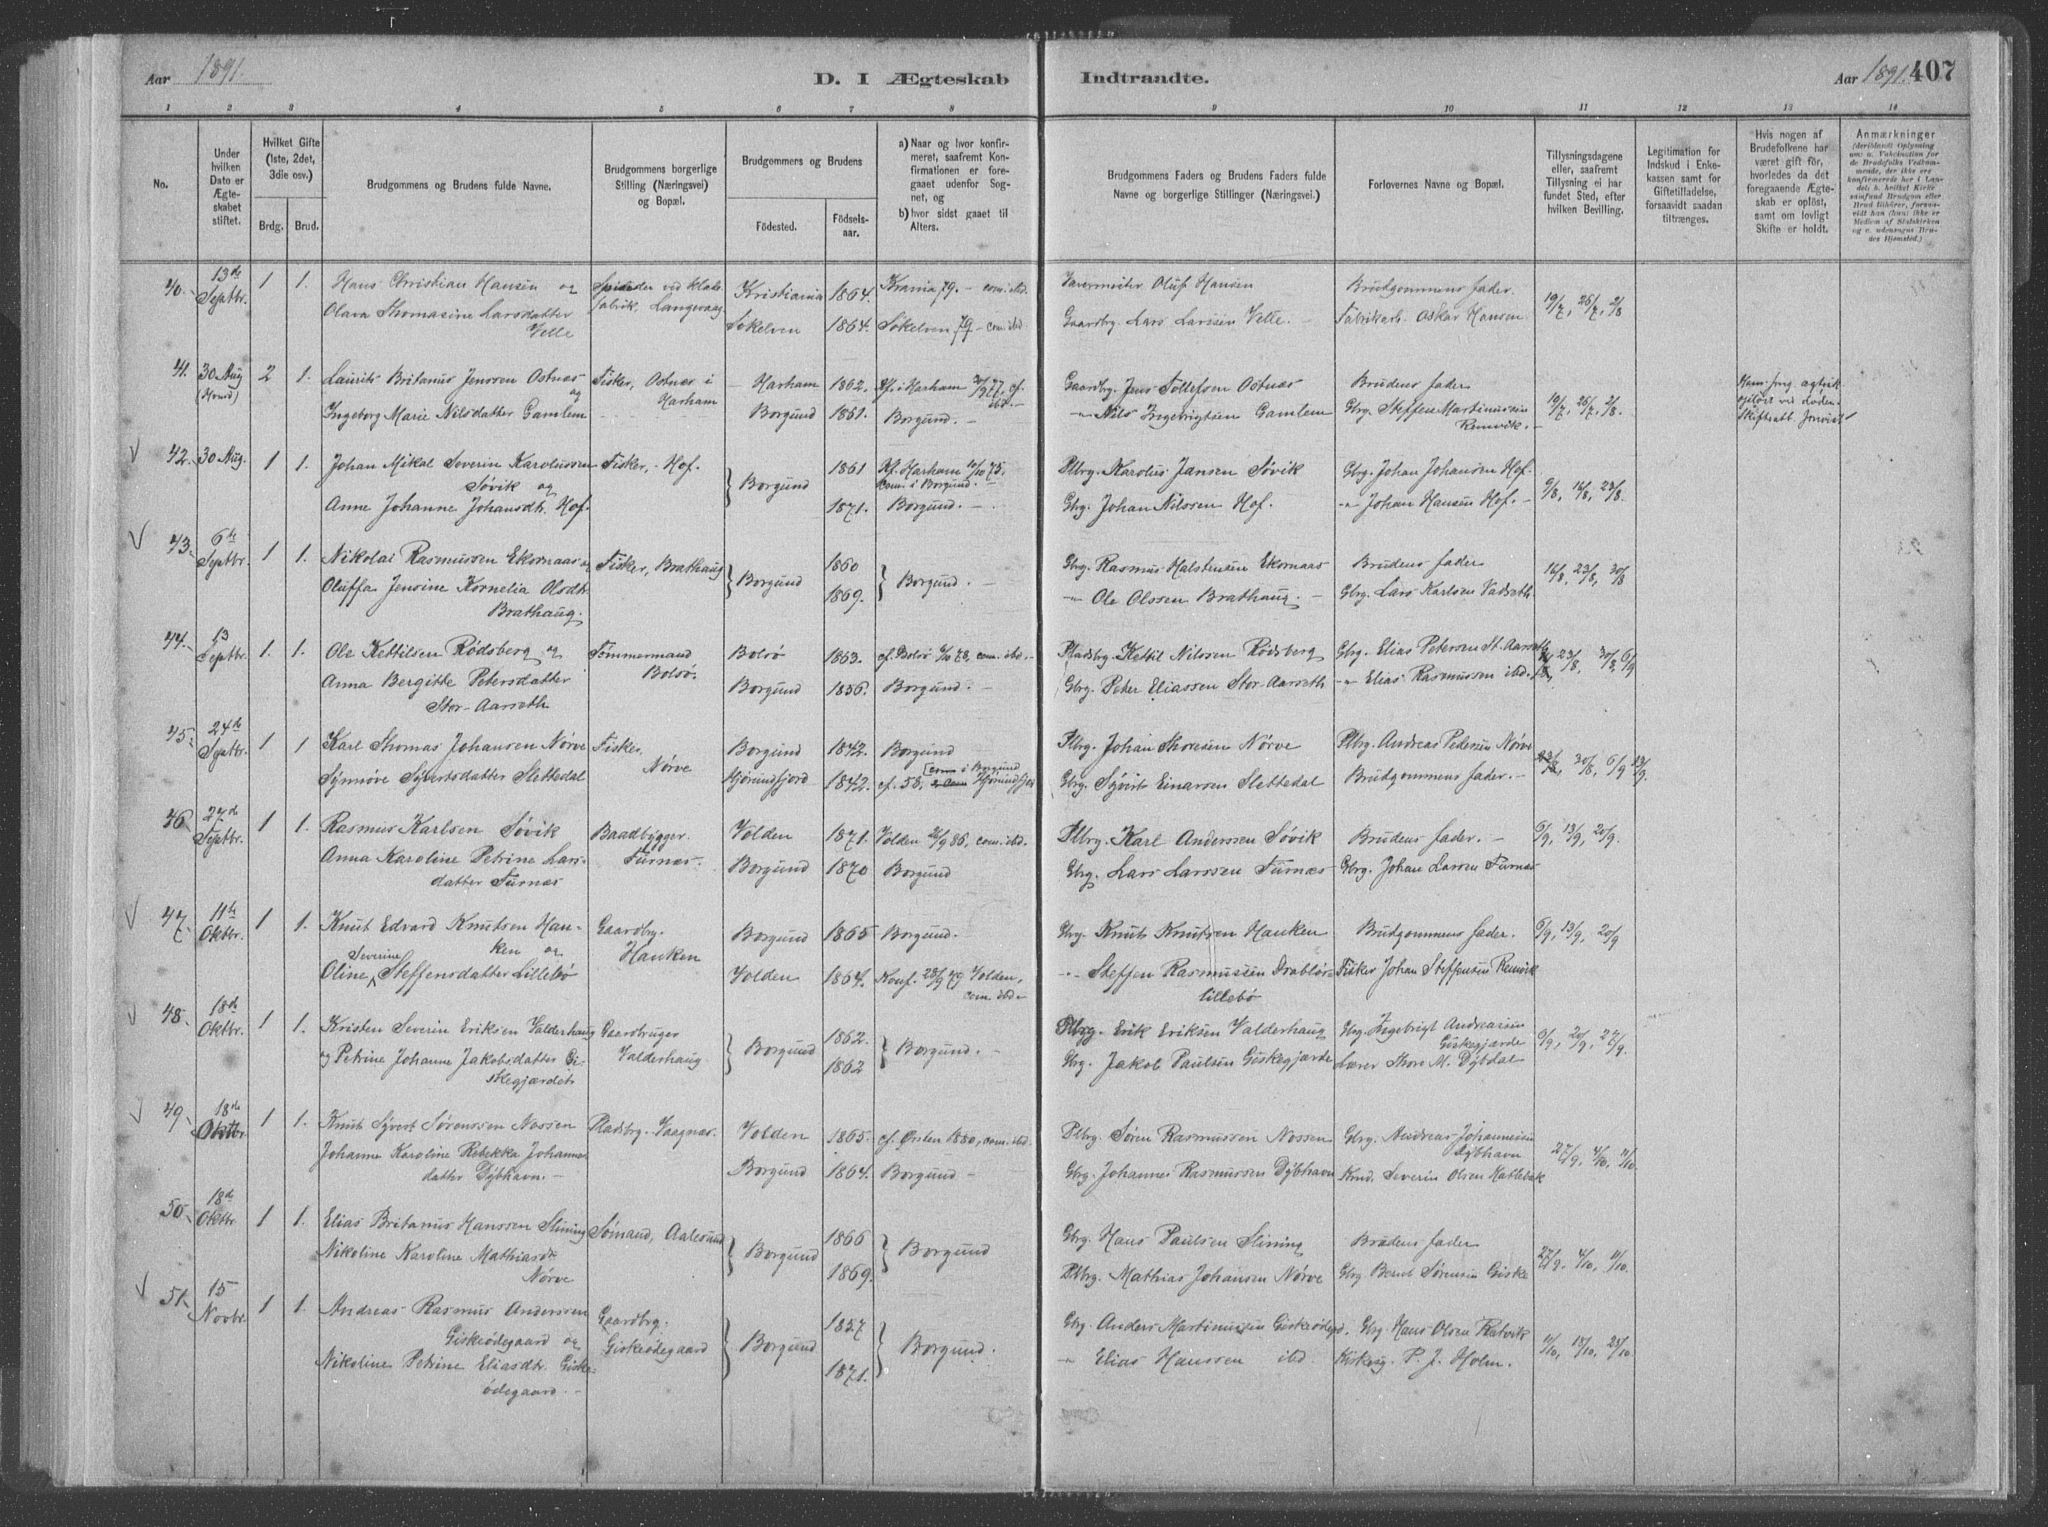 Aar 1891.
D. I Ægteskab Indtrandte.
Aar 1891. 407
1 2 3 4 5 6 7 8 9 10 11 12 13 14
No.
Under hvilken Dato er Ægteskabet stiftet.
Hvilket Gifte (1ste, 2det, 3die osv.)
Brdg. Brud.
Brudgommens og Brudens fulde Navne.
Brudgommens borgerlige Stilling (Næringsvei) og Bopæl.
Brudgommens og Brudens
Födested.
Födselsaar.
a) Naar og hvor konfirmeret, saafremt Konfirmationen er foregaaet udenfor Sognet, og
b) hvor sidst gaaet til Alters.
Brudgommens Faders og Brudens Faders fulde Navne og borgerlige Stillinger (Næringsvei.)
Forlovernes Navne og Bopæl.
Tillysningsdagene eller, saafremt Tillysning ei har fundet Sted, efter hvilken Bevilling.
Legitimation for Indskud i Enkekassen samt for Giftetilladelse, forsaavidt saadan tiltrænges.
Hvis nogen af Brudefolkene har været gift för, hvorledes da det foregaaende Ægteskab er oplöst, samt om lovligt Skifte er holdt.
Anmærkninger
40. 13de Septbr. 1 1. Hans Christian Hansen og
Olava Thomasine Larsdatter
Velle
ved Klæde-
fabrik, Langevaag
Kristiania 1864. Krania 79. – com. ibd.
Søkelven 1864. Søkelven 79 – com. ibd
Vævermeister Oluf Hansen
Gaardbg. Lars Larssen Velle. –
Brudgommens fader.
Fabrikarb. Oskar Hansen
19/7, 26/7, 2/8
41. 30 Aug 2 1. Laurits Britanus Jenssen Ostnæs
og
Ingeborg Marie Nilsdatter Gamlem
Fisker, Ostnæs i
Harham
Harham 1862. Kf. i Harham 77. cf.
ibd. –
Borgund 1861. Borgund. –
Gaardbg. Jens Tollefsen Ostnæs
" Nils Ingebrigtsen Gamlem
Brudens fader
Gbrg. Steffen Martinussen
Remvik. –
19/7, 26/7, 2/8
42. 30 Aug. 1 1. Johan Mikal Severin Karolussen
Søvik og
Anne Johanne Johansdtr. Hof.
Fisker, - Hof.
Borgund
1861 Kf. Harham 75.
com. i Borgund. –
1871. Borgund. –
Plbrg. Karolus Jansen Søvik
Gbrg. Johan Nilssen Hof.
Gbrg. Johan Johansen Hof.
" Johan Hansen Hof. –
9/8, 16/8, 23/8.
43. 6te Septbr. 1 1. Nikolai Rasmussen Ekornaas og
Oluffa Jensine Kornelia Olsdtr.
Brathaug.
Fisker, Brathaug
Borgund
1860
1869. Borgund. –
Gbrg. Rasmus Halstensen Ekornaas
" Ole Olssen Brathaug. –
Brudens fader
Gbrg. Lars Karlsen Vadseth
16/8, 23/8, 30/8
44. 13 Septbr. 1. 1. Ole Kettilsen Rødsberg og
Anna Bergitte Petersdatter
Stor-Aarseth
Tømmermand
Bolsø.
Bolsø 1863. cf. Bolsø 78, com. ibd. –
Borgund 1856. Borgund. –
Pladsbrg. Kettil Nilssen Rødsberg
Gbrg. Peter Eliassen Stor-Aarseth
Gbrg. Elias Petersen St. Aarseth
" Elias Rasmussen ibd.
23/8, 30/8, 6/9
45. 24de Septbr. 1 1 Karl Thomas Johansen Nørve
Synnøve Syvertsdatter Slettedal
Fisker,
Nørve
Borgund 1842. Borgund
com i Borgund
Hjørundfjord 1842. cf. 58, Hjørundfjor
Plbrg. Johan Thoresen Nørve
Gbrg. Syvert Einarsen Slettedal
Plbrg. Andreas Pedersen Nørve
Brudgommens fader. –
23/8, 30/8, 6/9 13/9.
46. 27de Septbr. 1 1. Rasmus Karlsen Søvik
Anna Karoline Petrine Lars-
datter Furnæs
Baadbygger.
Furnæs.
Volden 1871. Volden 26/9 86, com. ibd.
Borgund 1870 Borgund
Plbrg. Karl Anderssen Søvik
Gbrg. Lars Larssen Furnæs
Brudens fader. –
Gbrg. Johan Larsen Furnæs
6/9, 13/9, 20/9.
47. 11te Oktbr. 1 1. Knut Edvard Knutsen Hau-
ken og
Severine
Oline Steffensdatter Lillebø
Gaardbrg.
Hauken
Borgund 1865 Borgund.
Volden 1864. Konf. 28/9 79 Volden,
com. ibd –
Gbrg. Knut Knutsen Hauken
" Steffen Rasmussen Drabløs-
lillebø
Brudgommens fader.
Fisker Johan Steffensen Remvik
6/9, 13/9, 20/9
48. 18de Oktbr. 1 1. Kristen Severin Eriksen Valderhaug
og Petrine Johanne Jakobsdatter Gi-
skegjærdet
Gaardbruger
Valderhaug.
Borgund
1862.
1862 Borgund. –
Plbrg. Erik Eriksen Valderhaug
Gbrg. Jakob Paulsen Giskegjærde
Gbrg. Ingebrigt Andreassen
Giskegjærde
Lærer Thore M. Dybdal
6/9, 20/9, 27/9.
49. 18de Oktbr. 1 1. Knut Syvert Sørenssen Nossen
Johanne Karoline Rebekka Johannes
datter Dybhavn. –
Pladsbrg. Vaagnæs.
Volden 1865. cf. Ørsten 1880, com. ibd
Borgund 1864. Borgund –
Plbrg. Søren Rasmussen Nossen
Gbrg. Johannes Rasmussen Dybhavn
Gbrg. Andreas Johannessen
Dybhavn
Severin Olsen Hatlebak
27/9, 4/10, 11/10
50. 18de Oktbr 1 1. Elias Britanus Hanssen Slining
Nikoline Karoline Mathiasdr.
Nørve
Sømand, Aalesund
Borgund
1866
1869. Borgund
Gbrg. Hans Paulsen Slining
Plbrg. Mathias Johansen Nørve
Brudens fader
Gbrg Bernt Sørensen Giske
27/9, 4/10, 11/10.
51. 15 Novbr. 1 1. Andreas Rasmus Anderssen
Giskeødegaard og
Nikoline Petrine Eliasdtr. Giske-
ødegaard. –
Gaardbrg.
Giskeødegaard
Borgund
1857
1871. Borgund.
Gbrg. Anders Martinussen Giskeødegd.
" Elias Hanssen ibd
Gbrg. Hans Olsen Ratvik
Kirkesg. P. J. Holm.
11/10, 18/10, 25/10.